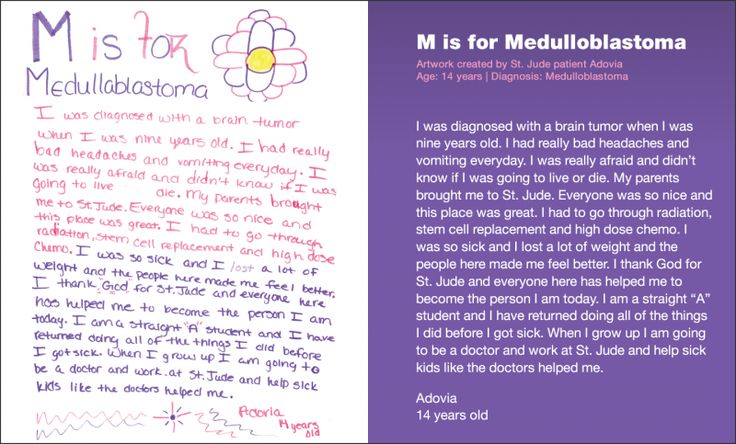 M is for
Medullablastoma
I was diagnosed with a brain tumor
when I was nine years old. I had really
bad headaches and vomiting everyday. I
was really afraid and didn't know if I was
going to live die. My parents brought
me to St. Jude. Everyone was so nice and
this place was great. I had to go through
radiation, stem cell replacement and high dose
chemo. I was so sick and I lost a lot of
weight and the people here made me feel better.
I thank God for St. Jude and everyone here
has helped me to become the person I am
today. I am a straight "A" student and I have
returned doing all of the things I did before
I got sick. When I grow up I am going to
be a doctor and work at St. Jude and help sick
kids like the doctors helped me.
Adovia
14 years
old
M is for Medulloblastoma
Artwork created by St. Jude patient Adovia
Age: 14 years | Diagnosis: Medulloblastoma
I was diagnosed with a brain tumor when I was
nine years old. I had really bad headaches and
vomiting everyday. I was really afraid and didn't
know if I was going to live or die. My parents
brought me to St. Jude. Everyone was so nice and
this place was great. I had to go through radiation,
stem cell replacement and high dose chemo. I
was so sick and I lost a lot of weight and the
people here made me feel better. I thank God for
St. Jude and everyone here has helped me to
become the person I am today. I am a straight "A"
student and I have returned doing all of the things
I did before I got sick. When I grow up I am going
to be a doctor and work at St. Jude and help sick
kids like the doctors helped me.
Adovia
14 years old